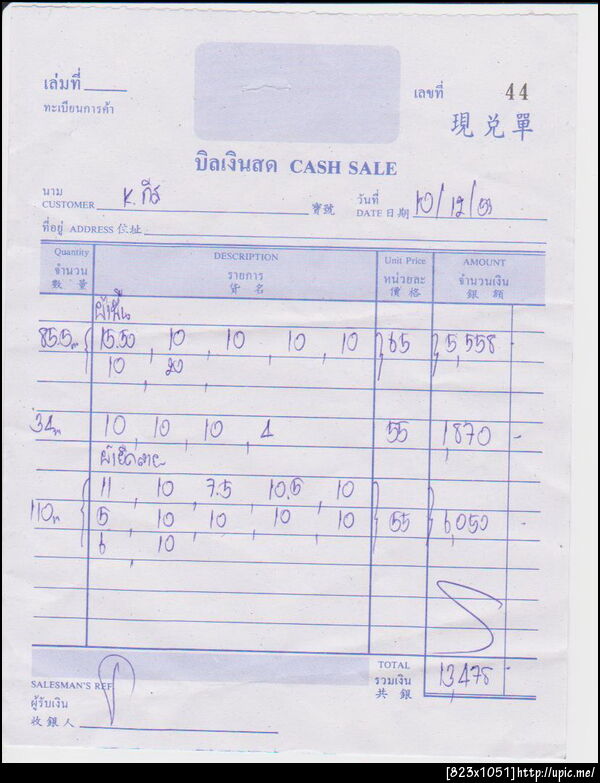 เล่มที่
เลขที่ 44
ทะเบียนการค้า
現兑單
บิลเงินสด CASH SALE
นาม
CUSTOMER K. กีร 寶號
วันที่
DATE 日期 10/12/53
ที่อยู่ ADDRESS 住址
Quantity DESCRIPTION Unit Price AMOUNT
จำนวน รายการ หน่วยละ จำนวนเงิน
數量 貨名 價格 銀額
85.5 15.50, 10, 10, 10, 10 65 5,558 -
10, 20
34 10, 10, 10, 4 55 1,870 -
ผ้ายืดลาย
11, 10, 7.5, 10.5, 10
110 5, 10, 10, 10, 10 55 6,050 -
6, 10
TOTAL 13,478 -
รวมเงิน
共銀
SALESMAN'S REF.
ผู้รับเงิน
收銀人
[823x1051]http://upic.me/